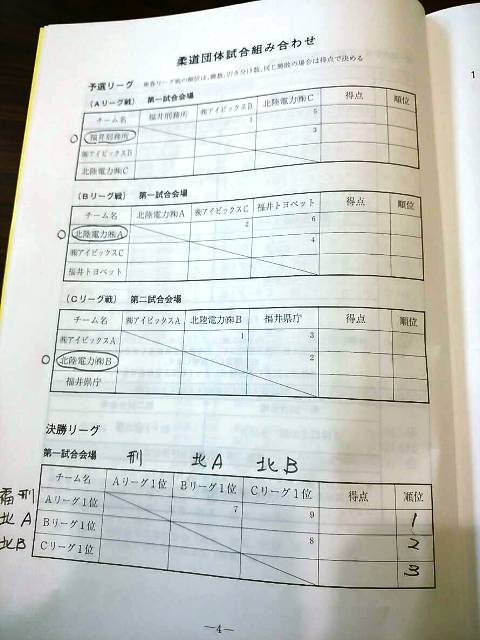 柔道団体試合組み合わせ
予選リーグ 各リーグ戦の順位は、勝数、引き分け数、同じ勝敗の場合は得点で決める
(Aリーグ戦) 第一試合会場
チーム名 福井刑務所 ㈱アイビックスB 北陸電力㈱C 得点 順位
○ 福井刑務所 1 5
㈱アイビックスB 3
北陸電力㈱C
(Bリーグ戦) 第一試合会場
チーム名 北陸電力㈱A ㈱アイビックスC 福井トヨペット 得点 順位
○ 北陸電力㈱A 2 6
㈱アイビックスC 4
福井トヨペット
(Cリーグ戦) 第二試合会場
チーム名 ㈱アイビックスA 北陸電力㈱B 福井県庁 得点 順位
㈱アイビックスA 1 3
○ 北陸電力㈱B 2
福井県庁
決勝リーグ
第一試合会場 刑 北A 北B
チーム名 Aリーグ1位 Bリーグ1位 Cリーグ1位 得点 順位
福刑 Aリーグ1位 7 9 1
北A Bリーグ1位 8 2
北B Cリーグ1位 3
—4—
1